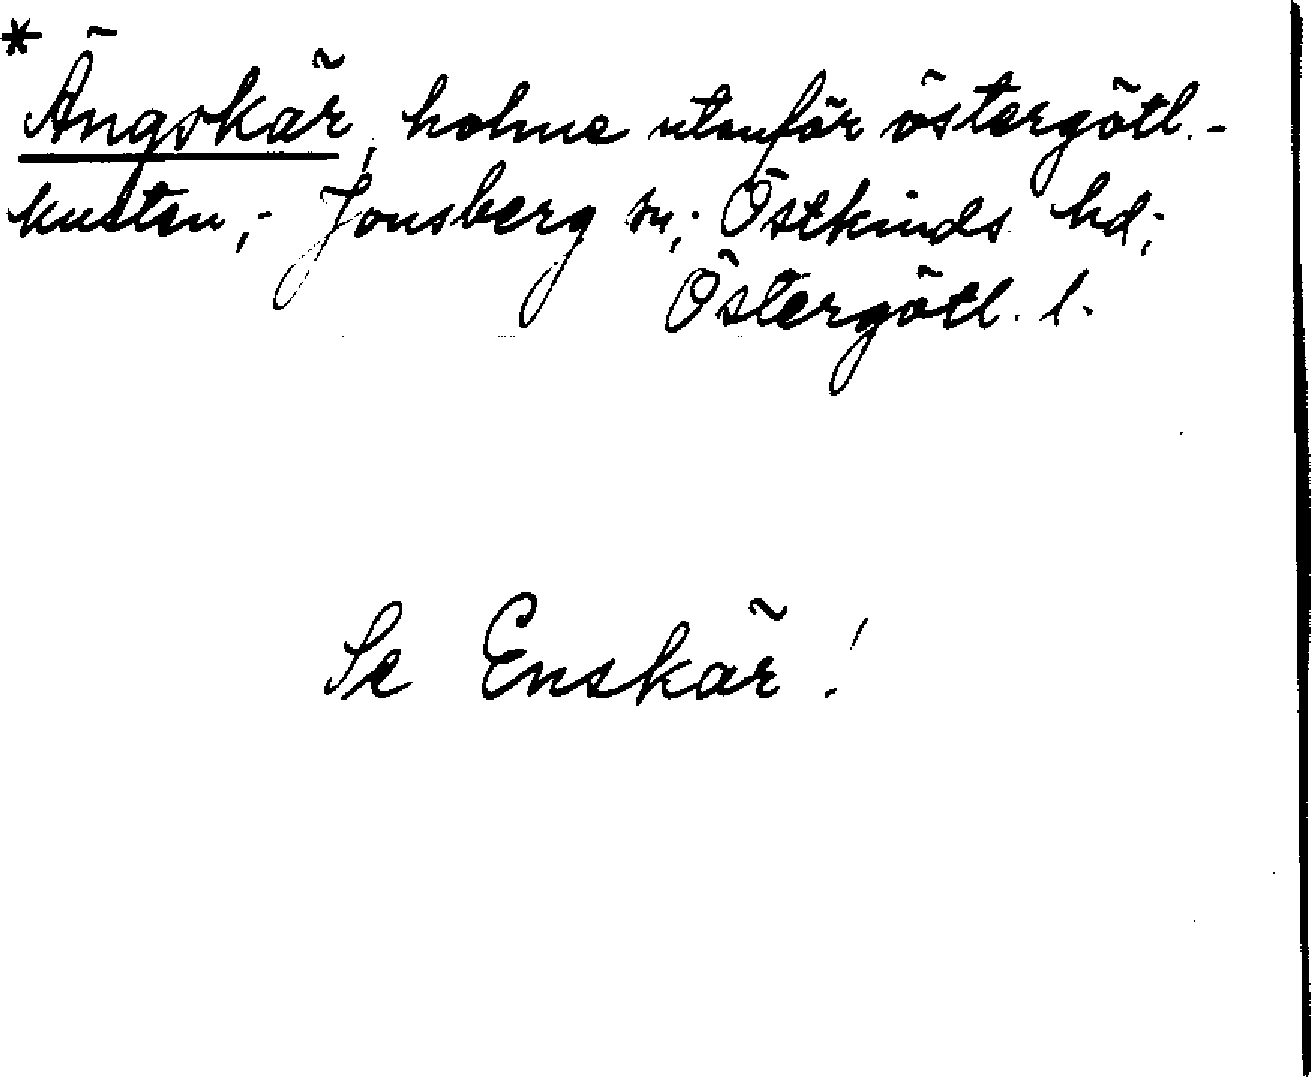 * Ängskär, holme utanför östergötl.-
kusten,- Jonsberg sn; Östkinds hd;
Östergötl. l.
Se Enskär!